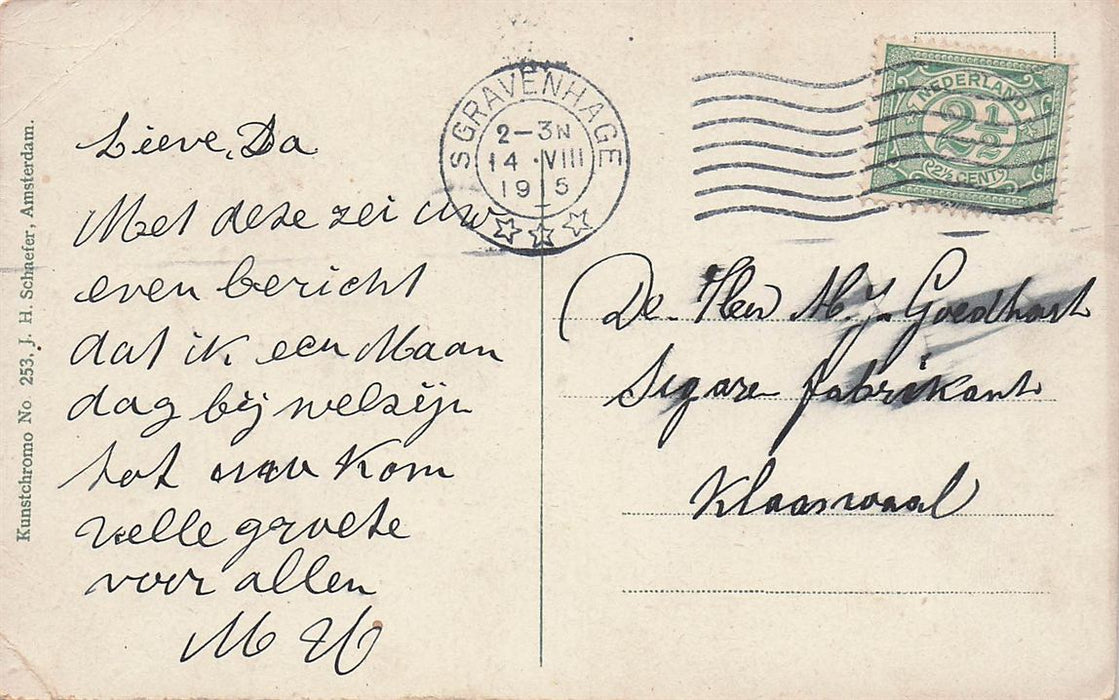 Kunstchromo No 253, J. H. Schaefer, Amsterdam.
Lieve, Da
Met deze zei uw
even bericht
dat ik een Maan
dag bij welzijn
tot Kom
velle groete
voor allen
M H
SGRAVENHAGE
2-3N
14 VIII
19 5
NEDERLAND
2½
2½ CENT
De Heer M. J. Goedhart
Sigare fabrikant
Klaaswaal